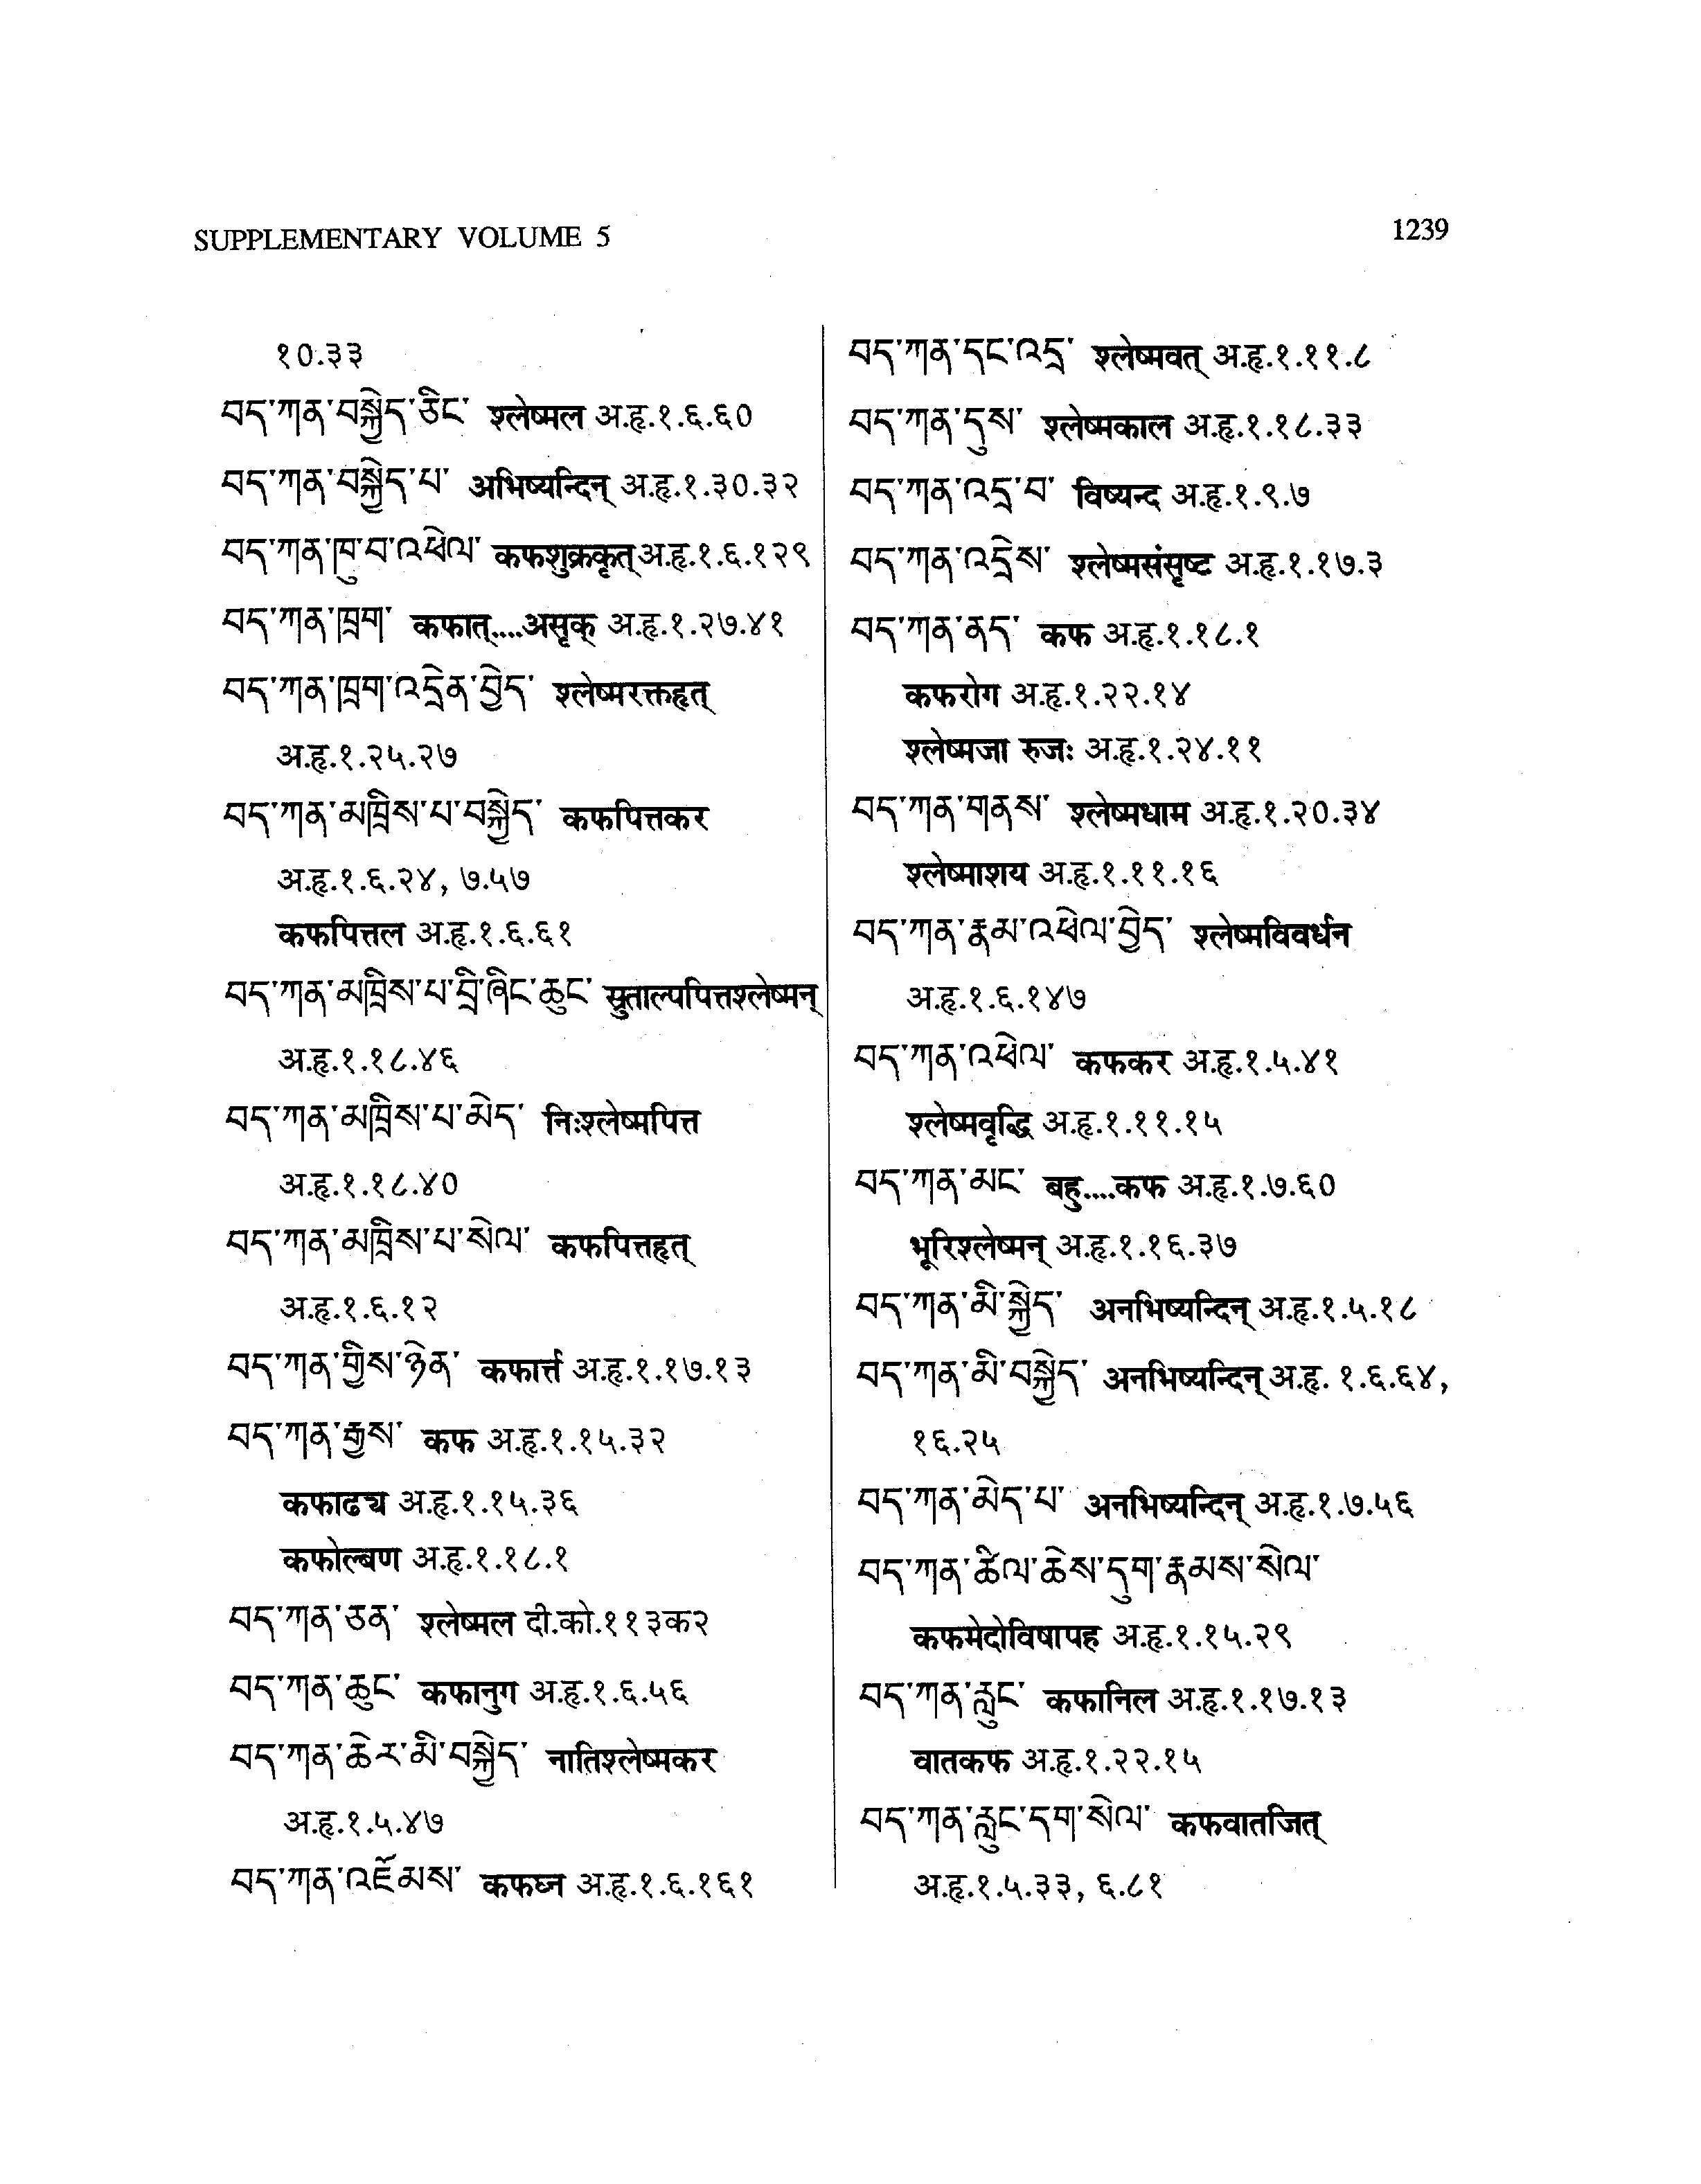 SUPPLEMENTARY VOLUME 5
1239
१०.३३
བད་ཀན་བསྐྱེད་ཅིང་ श्लेष्मल अ.हृ.१.६.६०
བད་ཀན་བསྐྱེད་པ་ अभिष्यन्दिन् अ.हृ.१.३०.३२
བད་ཀན་ཁུ་བ་འཕེལ་ कफशुक्रकृत् अ.हृ.१.६.१२९
བད་ཀན་ཁྲག་ कफात्....असृक् अ.हृ.१.२७.४१
བད་ཀན་ཁྲག་འདྲེན་བྱེད་ श्लेष्मरक्तहृत्
अ.हृ.१.२५.२७
བད་ཀན་མཁྲིས་པ་བསྐྱེད་ कफपित्तकर
अ.हृ.१.६.२४, ७.५७
कफपित्तल अ.हृ.१.६.६१
བད་ཀན་མཁྲིས་པ་བྲི་ཞིང་ཆུང་ स्रुताल्पपित्तश्लेष्मन्
अ.हृ.१.१८.४६
བད་ཀན་མཁྲིས་པ་མེད་ निःश्लेष्मपित्त
अ.हृ.१.१८.४०
བད་ཀན་མཁྲིས་པ་སེལ་ कफपित्तहृत्
अ.हृ.१.६.१२
བད་ཀན་གྱིས་ཉེན་ कफार्त्त अ.हृ.१.१७.१३
བད་ཀན་རྒྱས་ कफ अ.हृ.१.१५.३२
कफाढ्य अ.हृ.१.१५.३६
कफोल्बण अ.हृ.१.१८.१
བད་ཀན་ཅན་ श्लेष्मल दी.को.११३क२
བད་ཀན་ཆུང་ कफानुग अ.हृ.१.६.५६
བད་ཀན་ཆེར་མི་བསྐྱེད་ नातिश्लेष्मकर
अ.हृ.१.५.४७
བད་ཀན་འཇོམས་ कफघ्न अ.हृ.१.६.१६१
བད་ཀན་དང་འདྲ་ श्लेष्मवत् अ.हृ.१.११.८
བད་ཀན་དུས་ श्लेष्मकाल अ.हृ.१.१८.३३
བད་ཀན་འདྲ་བ་ विष्यन्द अ.हृ.१.९.७
བད་ཀན་འདྲེས་ श्लेष्मसंसृष्ट अ.हृ.१.१७.३
བད་ཀན་ནད་ कफ अ.हृ.१.१८.१
कफरोग अ.हृ.१.२२.१४
श्लेष्मजा रुजः अ.हृ.१.२४.११
བད་ཀན་གནས་ श्लेष्मधाम अ.हृ.१.२०.३४
श्लेष्माशय अ.हृ.१.११.१६
བད་ཀན་རྣམ་འཕེལ་བྱེད་ श्लेष्मविवर्धन
अ.हृ.१.६.१४७
བད་ཀན་འཕེལ་ कफकर अ.हृ.१.५.४१
श्लेष्मवृद्धि अ.हृ.१.११.१५
བད་ཀན་མང་ बहु....कफ अ.हृ.१.७.६०
भूरिश्लेष्मन् अ.हृ.१.१६.३७
བད་ཀན་མི་སྐྱེད་ अनभिष्यन्दिन् अ.हृ.१.५.१८
བད་ཀན་མི་བསྐྱེད་ अनभिष्यन्दिन् अ.हृ. १.६.६४,
१६.२५
བད་ཀན་མེད་པ་ अनभिष्यन्दिन् अ.हृ.१.७.५६
བད་ཀན་ཚིལ་ཆེས་དུག་རྣམས་སེལ་
कफमेदोविषापह अ.हृ.१.१५.२९
བད་ཀན་རླུང་ कफानिल अ.हृ.१.१७.१३
वातकफ अ.हृ.१.२२.१५
བད་ཀན་རླུང་དག་སེལ་ कफवातजित्
अ.हृ.१.५.३३, ६.८१